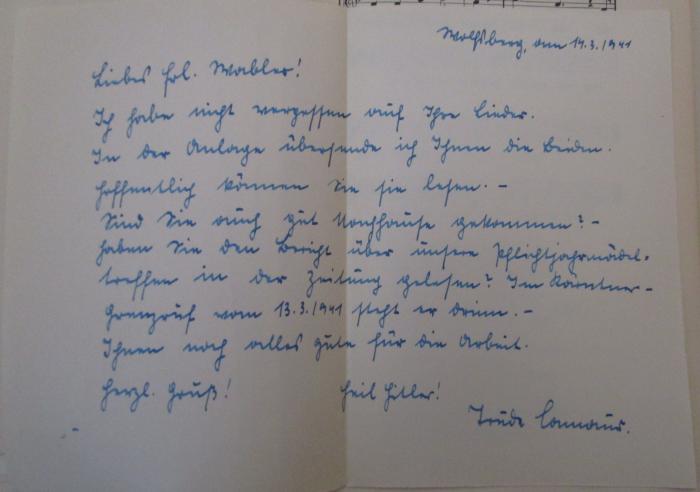 Wolfsberg, am 14.3.1941
Liebes Frl. Wabler!
Ich habe nicht vergessen auf Ihre Lieder.
In der Anlage übersende ich Ihnen die Beiden.
Hoffentlich können Sie sie lesen. –
Sind Sie auch gut Nachhause gekommen? –
Haben Sie den Bericht über unsere Pflichtjahrmädel-
treffen in der Zeitung gelesen? Im Kärntner-
Grenzruf vom 13.3.1941 steht er drinn. –
Ihnen noch alles gute für die Arbeit.
Herzl. Gruß! Heil Hitler!
Trude